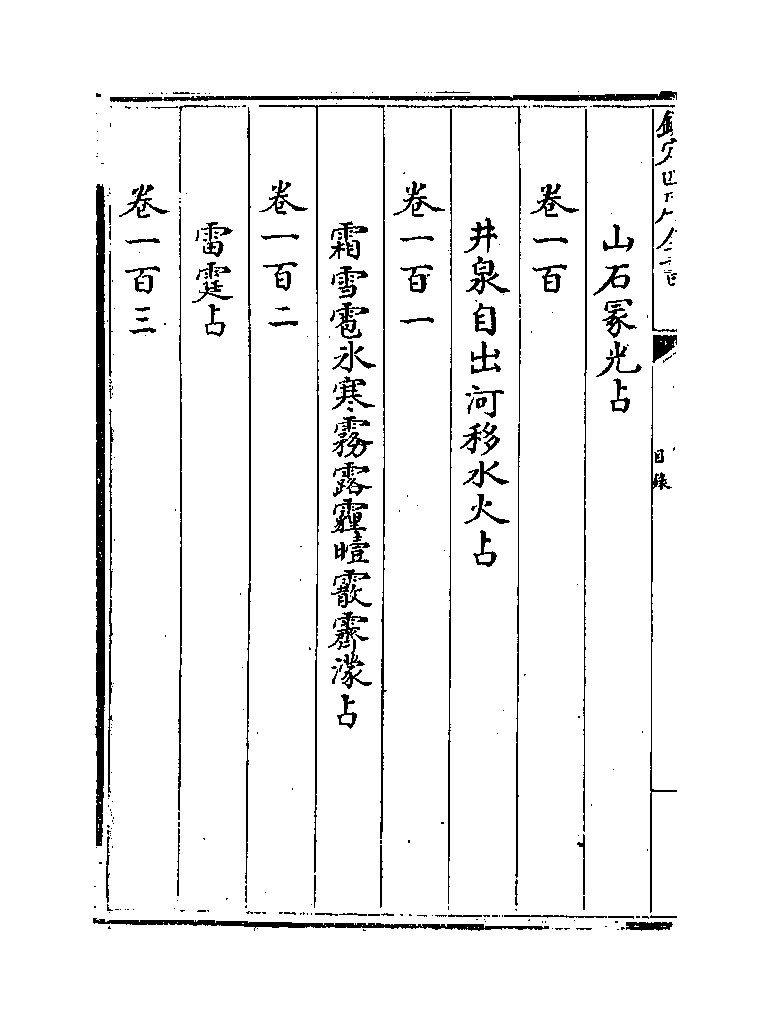 欽定四庫全書
目錄
山石冢光占
卷一百
井泉自出河移水火占
卷一百一
霜雪雹氷寒霧露霾曀霰霽濛占
卷一百二
雷霆占
卷一百三